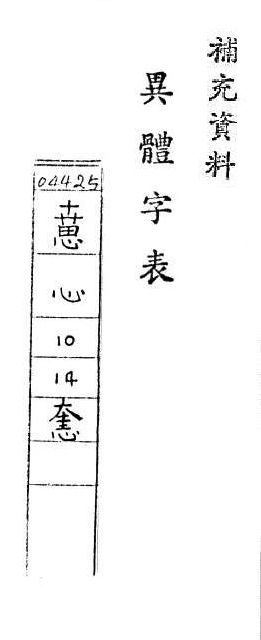 補充資料
異體字表
04425
心
10
14